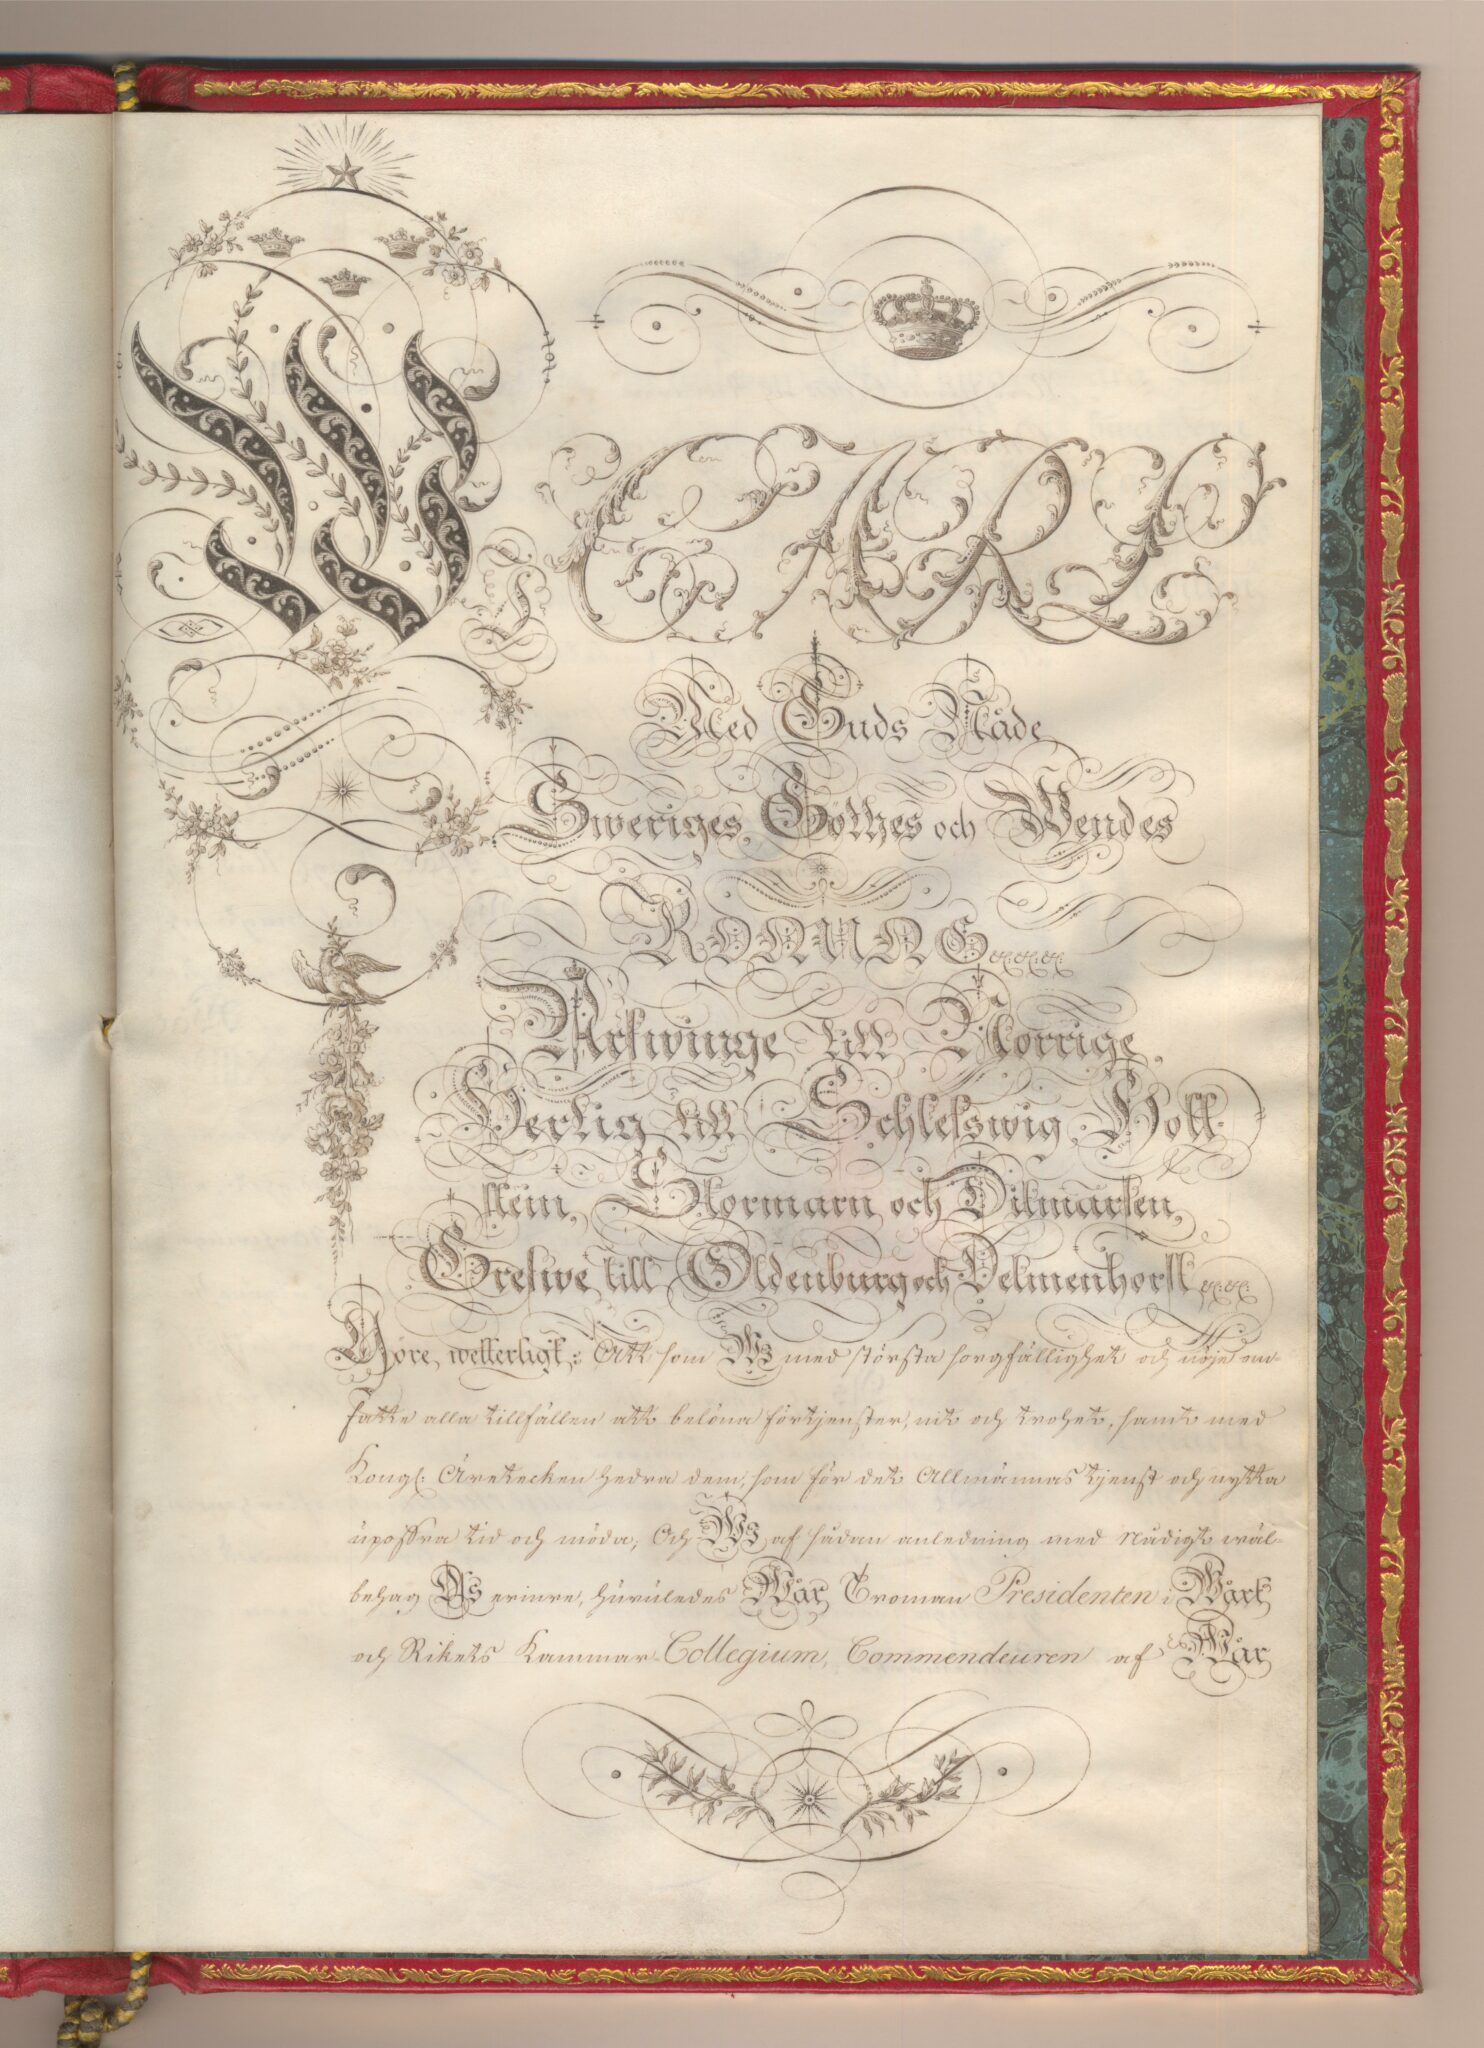 Wi CARL
Med Guds Nåde
Sweriges, Göthes och Wendes
KONUNG &c. &c. &c.
Arfwinge till Norrige,
Hertig till Schleswig Holl-
stein, Stormarn och Ditmarsen,
Grefwe till Oldenburg och Delmenhorst &c. &c.
Göre wetterligt: Att som Wi med största sorgfällighet och nöje om-
fatte alla tillfällen att belöna förtjenster, nit och trohet, samt med
Kongl: Äretecken hedra dem, som för det Allmännas tjenst och nytta
upoffra tid och möda; Och Wi af sådan anledning med Nådigt wäl-
behag Oss erinre, huruledes Wår Troman Presidenten i Wårt
och Rikets Kammar-Collegium, Commendeuren af Wår